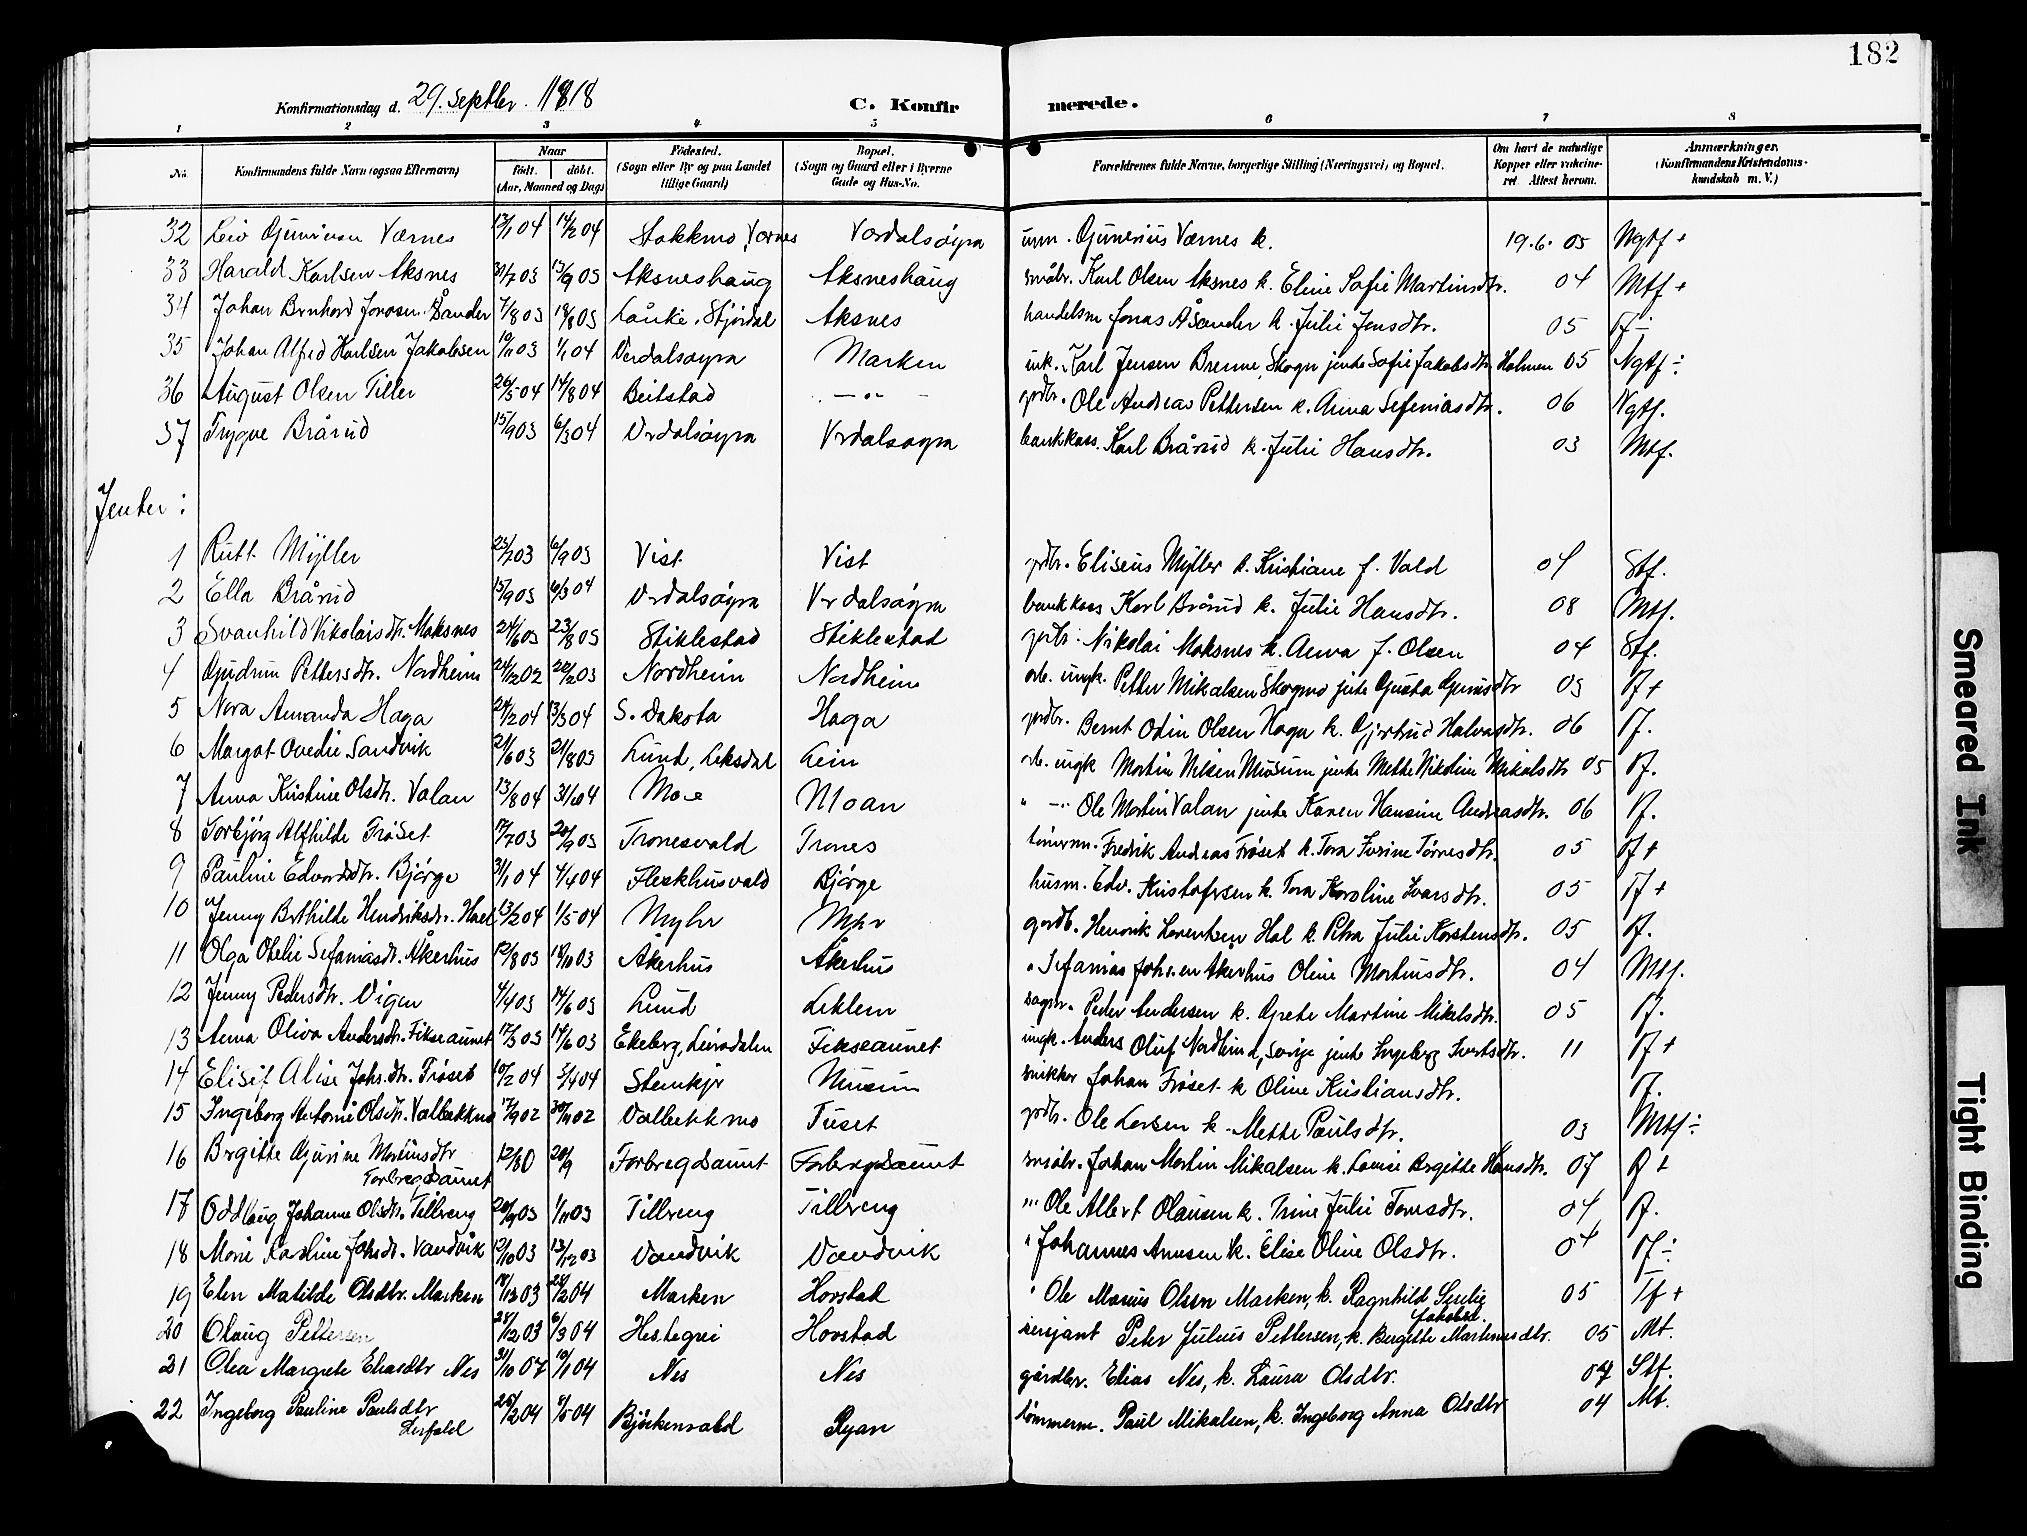 182
Konfirmationsdag d. 29. septbr. 1918 C. Konfirmerede.
1 2 3 4 5 6 7 8
No. Konfirmandens fulde Navn (ogsaa Efternavn) Naar født. døbt. (Aar, Maaned og Dag) Fødested. (Sogn eller By og paa Landet tillige Gaard) Bopæl. (Sogn og Gaard eller i Byerne Gade og Hus-No. Forældrenes fulde Navne, borgerlige Stilling (Næringsvei) og Bopæl. Om havt de naturlige Kopper eller vakcineret Attest herom. Anmærkninger. (Konfirmandens Kristendomskundskab m. V.)
32 Leiv Gunnerius Værnes 13/1 04 14/2 04 Stokkmo, Værnes Verdalsøyra Gunerius Værnes k. 19.6. 05 Ngtf +
33 Harald Karlsen Aksnes 30/7 03 13/9 03 Aksneshaug Aksneshaug småbr. Karl Olsen Aksnes k. Eline Sofie Martinsdtr. 04 Mtf +
34 Johan Bernhard Jonasen Åsander 7/8 03 19/8 03 Lånke, Stjørdal Aksnes handelsm Jonas Åsander k. Julie Jensdtr. 05 Tf ÷
35 Johan Alfred Karlsen Jakobsen 19/11 03 1/1 04 Verdalsøyra Marken ink. Karl Jensen Brenne, Skogn jente Sofie Jakobsdtr. Holmen 05 Ngtf ÷
36 August Olsen Tiller 26/5 04 14/8 04 Beitstad — „ — grdbr. Ole Andreas Pettersen k. Anna Sefaniasdtr. 06 Ngtf.
37 Trygve Brårud 15/9 03 6/3 04 Verdalsøyra Verdalsøyra bankkass. Karl Brårud k. Julie Hansdtr. 03 Mtf.
Jenter:
1 Rutt Myller 23/7 03 6/9 03 Vist Vist grdbr. Eliseus Myller k. Kristiane f. Vold 04 Stf.
2 Ella Brårud 15/9 03 6/3 04 Verdalsøyra Verdalsøyra bankkass Karl Brårud k. Julie Hansdtr. 08 Mtf.
3 Svanhild Nikolaisdtr. Maksnes 24/6 03 23/8 03 Stiklestad Stiklestad grdbr. Nikolai Maksnes k. Anna f. Olsen 04 Stf.
4 Gudrun Pettersdtr. Nordheim 24/12 02 22/2 03 Nordheim Nordheim arb. ungk. Petter Mikalsen Skogmo jente Gusta Gunisdtr 03 Tf +
5 Nora Amanda Haga 24/2 04 13/3 04 S. Dakota Haga grdbr. Bernt Odin Olsen Haga k. Gjertrud Halvarsdtr. 06 Tf.
6 Margot Ovedie Sandvik 21/6 03 21/8 03 Lund, Leksdal Lein arb. ungk Martin Nilsen Musum jente Mette Nikoline Mikalsdtr 05 Tf.
7 Anna Kristine Olsdtr. Valan 13/8 04 31/10 04 Moe Moan " — " Ole Martin Valan jente Karen Hansine Andreasdtr. 06 Tf.
8 Torbjørg Alfhilde Frøset 17/7 03 20/9 03 Tronesvald Trones tømrm. Fredrik Andreas Frøset k. Tora Turine Tørresdtr. 05 Tf +
9 Pauline Edvardsdtr. Bjørge 31/1 04 4/4 04 Fleskhusvald Bjørge husm. Edv. Kristofersen k. Tora Karoline Ivarsdtr. 05 Tf +
10 Jenny Bethilde Hendriksdtr. Hael 13/2 04 1/5 04 Myhr Myhr gardb. Henrik Lorentsen Hal k. Petra Julie Karstensdtr. 05 Tf.
11 Olga Otelie Sefaniasdtr. Åkerhus 12/8 03 18/10 03 Åkerhus Åkerhus " Sefanias Johnsen Åkerhus Oline Mortinsdtr. 04 Mtf.
12 Jenny Pedersdtr. Vigen 4/4 03 14/6 03 Lund Leklem sagbr. Peder Andersen k. Grete Martine Mikelsdtr. 05 Tf.
13 Anna Oliva Andersdtr. Fikseaunet 17/3 03 14/6 03 Ekeberg, Leirådalen Fikseaunet ungk. Anders Oluf Nordlund, Sverige jente Ingeborg Ivertsdtr. 11 Tf +
14 Elisif Alise Johs.dtr. Frøset 10/2 04 3/4 04 Steinkjr Musum snikker Johan Frøset k Oline Kristiansdtr. Tf.
15 Ingeborg Antonie Olsdtr. Valbekkmo 17/9 02 30/11 02 Valbekkmo Tuset grdbr. Ole Larsen k. Mette Paulsdtr. 03 Mtf ÷
16 Bergitte Gurine Martinsdtr Forbregdsaunet 12/8 0 20/9 Forbregdsaunet Forbregdsaunet småbr. Johan Martin Mikalsen k. Lovise Bergitte Hansdtr. 07 Tf +
17 Oddlaug Johanne Olsdtr. Tillreng 20/9 03 1/11 03 Tillreng Tillreng " Ole Albert Olausen k. Trine Julie Tomesdtr. 04 Tf.
18 Marie Karoline Johsdtr. Vandvik 12/10 03 13/12 03 Vandvik Vandvik " Johannes Arnesen k. Elise Oline Olsdtr. 04 Tf ÷
19 Elen Matilde Olsdtr. Marken 18/12 03 28/2 04 Marken Hovstad " Ole Marius Olsen Marken, k. Ragnhild Serelie Jakobsd. 05 Tf +
20 Olaug Pettersen 28/12 03 6/3 04 Hestegrei Hovstad sersjant Peter Julius Pettersen, k. Bergitte Martinusdtr. 05 Mt.
21 Olea Margrete Eliasdtr Nes 31/10 07 10/1 04 Nes Nes gårdbr. Elias Nes, k. Laura Olsdtr. 07 Stf.
22 Ingeborg Pauline Paulsdtr Lerfald 26/2 04 /5 04 Bjørkenvald Ryan tømmerm. Paul Mikalsen, k. Ingeborg Anna Olsdtr 04 Mt.
Smeared Ink
Tight Binding